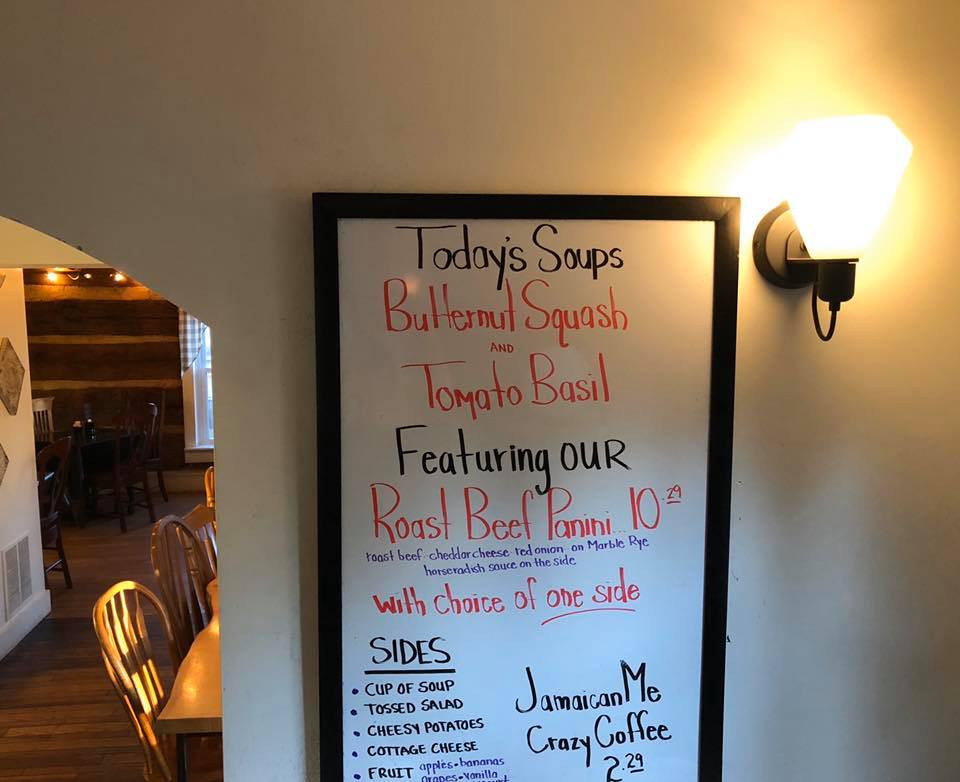 Today's Soups
Butternut Squash
AND
Tomato Basil
Featuring OUR
Roast Beef Panini...10.29
roast beef cheddar cheese red onion on Marble Rye
horseradish sauce on the side
with choice of one side
SIDES
• CUP OF SOUP
• TOSSED SALAD
• CHEESY POTATOES
• COTTAGE CHEESE
• FRUIT apples-bananas
grapes-vanilla
Jamaican Me
Crazy Coffee
2.29